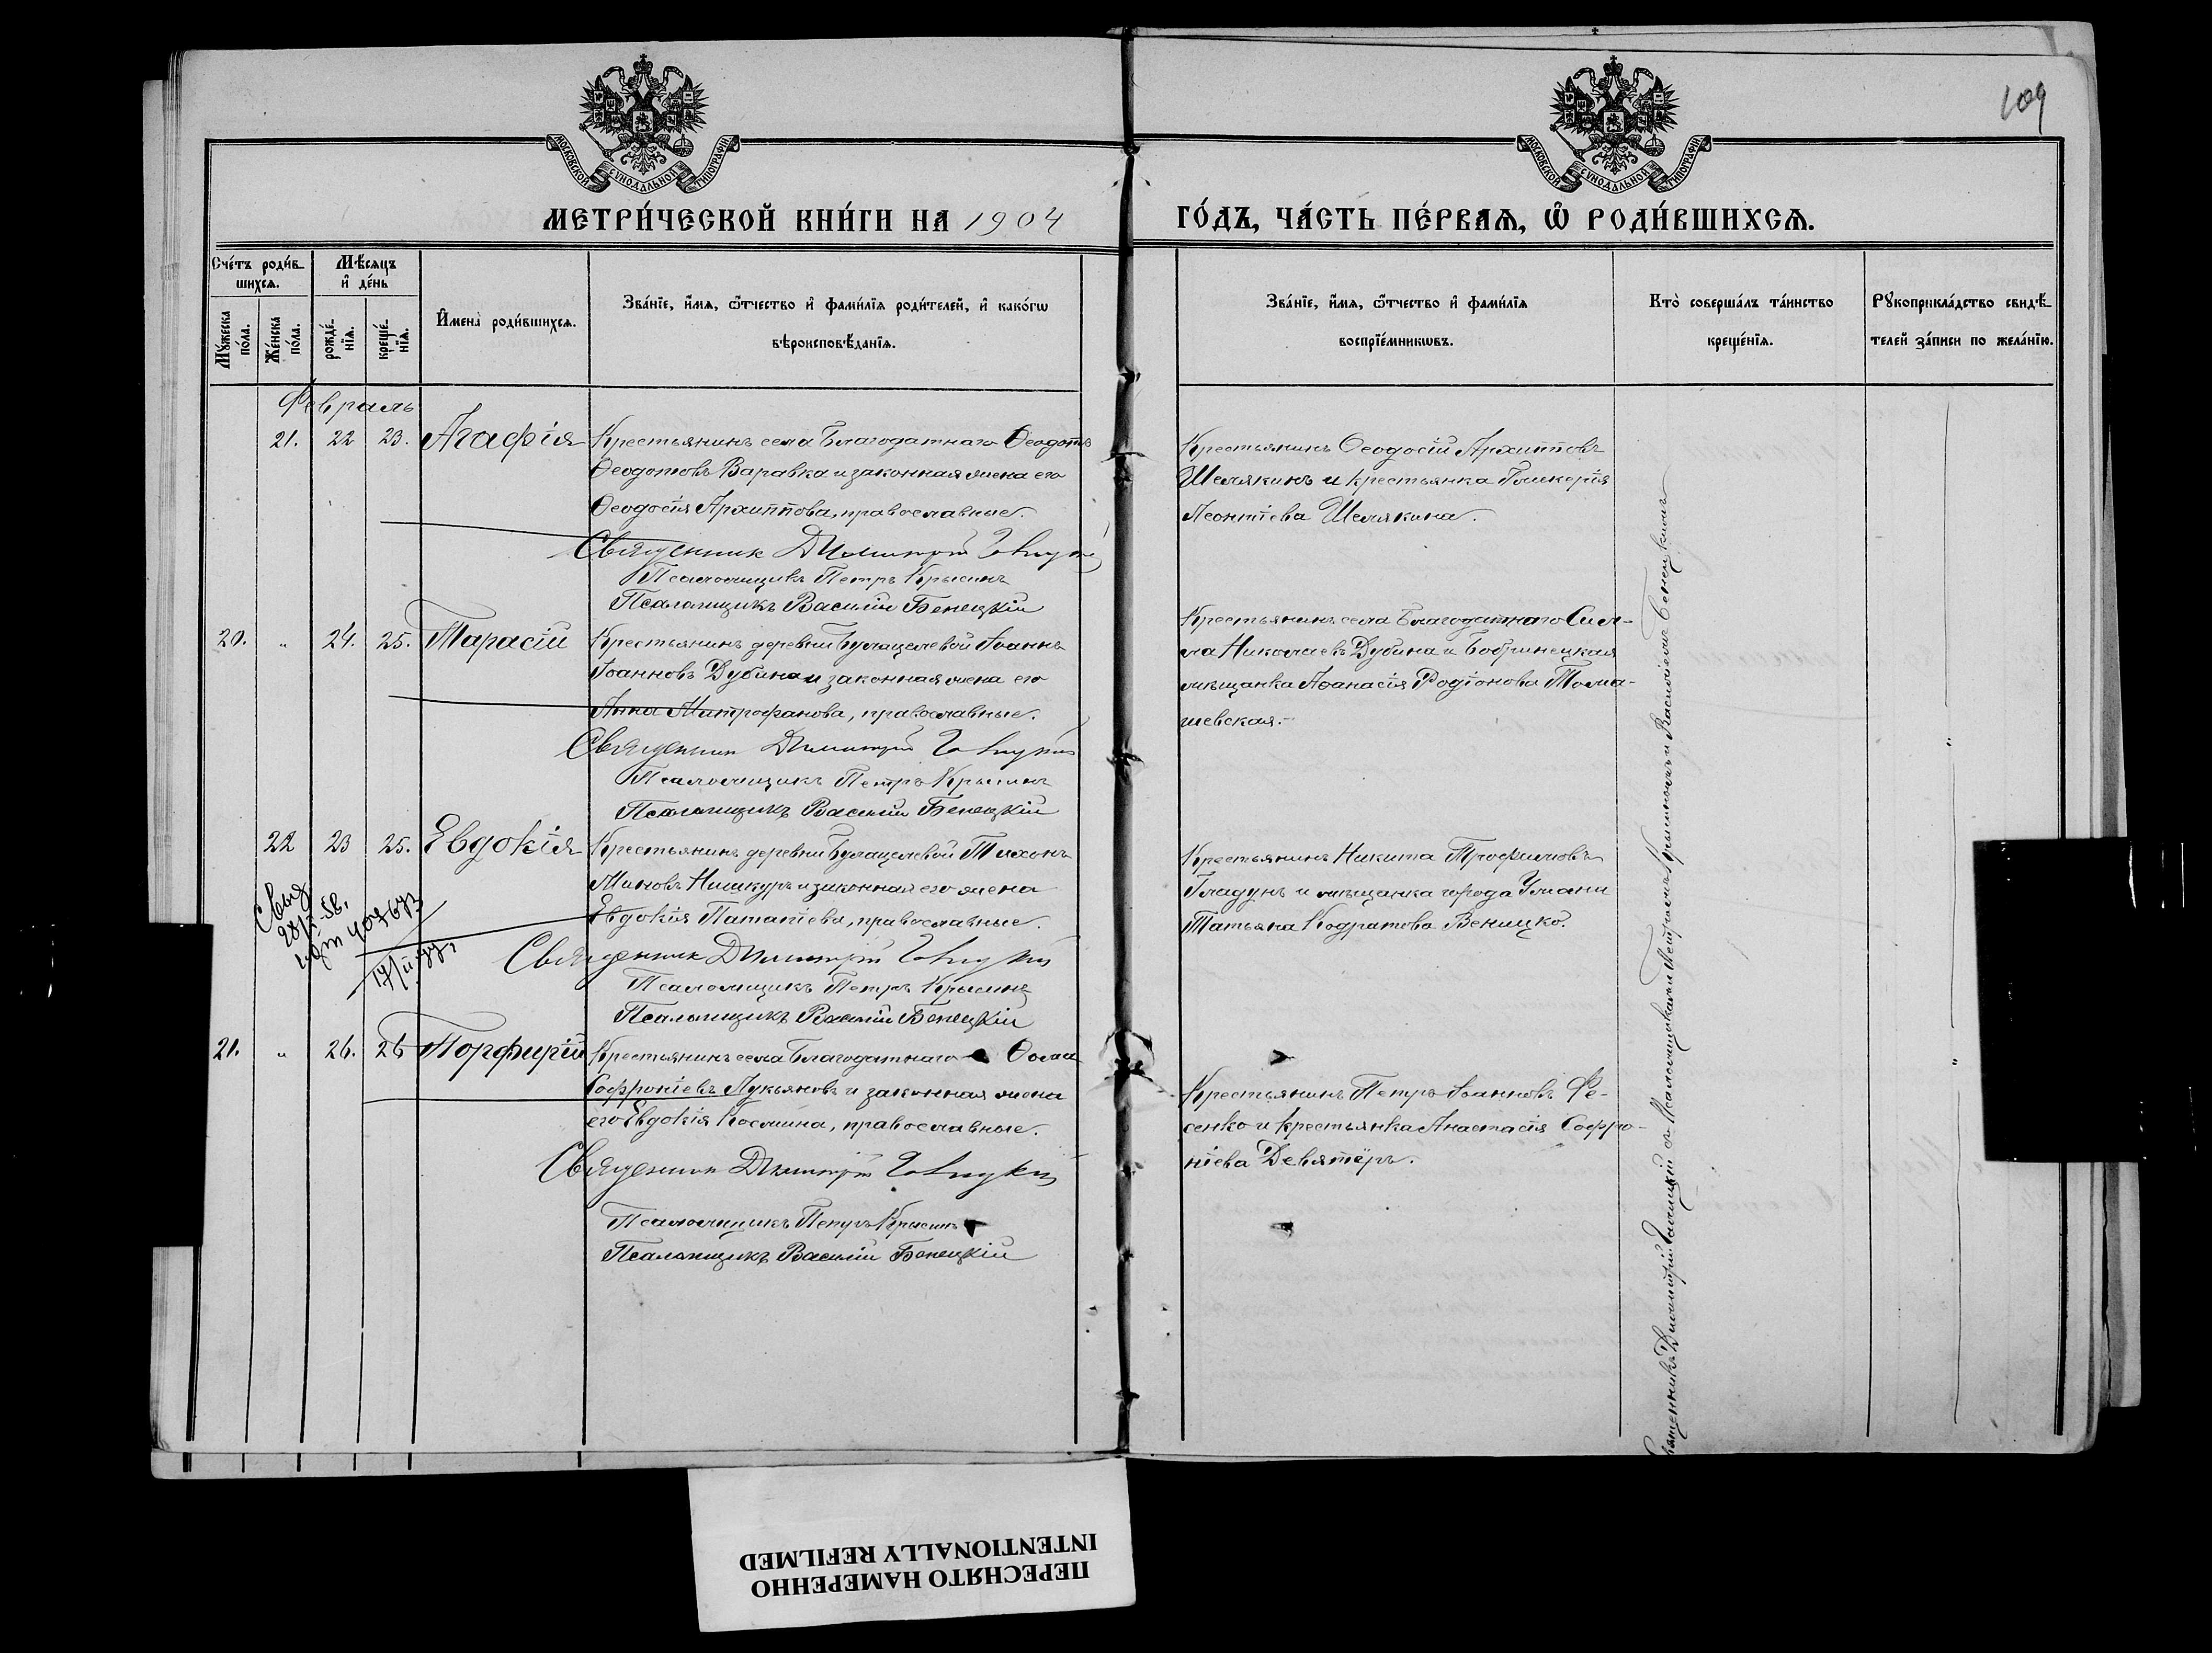 109
МОСКОВСКОЙ СѴНОДАЛЬНОЙ ТИПОГРАФІИ
МОСКОВСКОЙ СѴНОДАЛЬНОЙ ТИПОГРАФІИ
МЕТРИ́ЧЕСКОЙ КНИ́ГИ НА 1904
ГО́ДЪ, ЧА́СТЬ ПЕ́РВАѦ, Ѡ҆ РОДИ́ВШИХСѦ.
Сче́тъ роди́в-
шихсѧ.
Мѣ́сѧцъ
и҆ де́нь
Мꙋ́жеска
по́ла.
Же́нска
по́ла.
рожде́-
нїѧ.
креще́-
нїѧ.
И҆мена̀ роди́вшихсѧ.
Зва́нїе, и҆́мѧ, ѻ҆́тчество и҆ фами́лїѧ роди́телей, и҆ како́гѡ
вѣроисповѣ́данїѧ.
Зва́нїе, и҆́мѧ, ѻ҆́тчество и҆ фами́лїѧ
воспрїе́мникѡвъ.
Кто̀ соверша́лъ та́инство
креще́нїѧ.
Рꙋкоприкла́дство свидѣ́-
телей за́писи по жела́нїю.
Февраль
21. 22 23. Агафія
Крестьянинъ села Благодатнаго Ѳеодотъ
Ѳеодотовъ Варавка и законная жена его
Ѳеодосія Архиппова, православные.
Священник Димитрій
Псаломщикъ Петръ Крысинъ
Псаломщикъ Василій Бенецкій
Крестьянинъ Ѳеодосій Архипповъ
Шелякинъ и крестьянка Гликерія
Леонтіева Шелякина.
20. " 24. 25. Тарасій
Крестьянинъ деревни Булацелевой Іоаннъ
Іоанновъ Дубина и законная жена его
Анна Митрофанова, православные.
Священник Димитрій
Псаломщикъ Петръ Крысинъ
Псаломщикъ Василій Бенецкій
Крестьянинъ села Благодатнаго Сил-
ла Николаевъ Дубина и Бобринецкая
мѣщанка Аѳанасія Родіонова Тома-
шевская.
22 23 25. Евдокія
Крестьянинъ деревни Булацелевой Тихонъ
Миновъ Нишкуръ и законная его жена
Евдокія Патапіева, православные.
Священник Димитрій
Псаломщикъ Петръ Крысинъ
Псаломщикъ Василій Бенецкій
Крестьянинъ Никита Трофимовъ
Гладунъ и мѣщанка города Умани
Татьяна Кодратова Веницко.
21. " 26. 26 Порфирій
Крестьянинъ села Благодатнаго Ѳома
Софроніевъ Лукьяновъ и законная жена
его Евдокія Космина, православные.
Священник Димитрій
Псаломщикъ Петръ Крысинъ
Псаломщикъ Василій Бенецкій
Крестьянинъ Петръ Іоанновъ Фе-
сенко и крестьянка Анастасія Софро-
ніева Девятёръ.
Священникъ Димитрій съ Псаломщиками Петромъ Крысинымъ и Василіемъ Бенецкимъ
ПЕРЕСНЯТО НАМЕРЕННО
INTENTIONALLY REFILMED